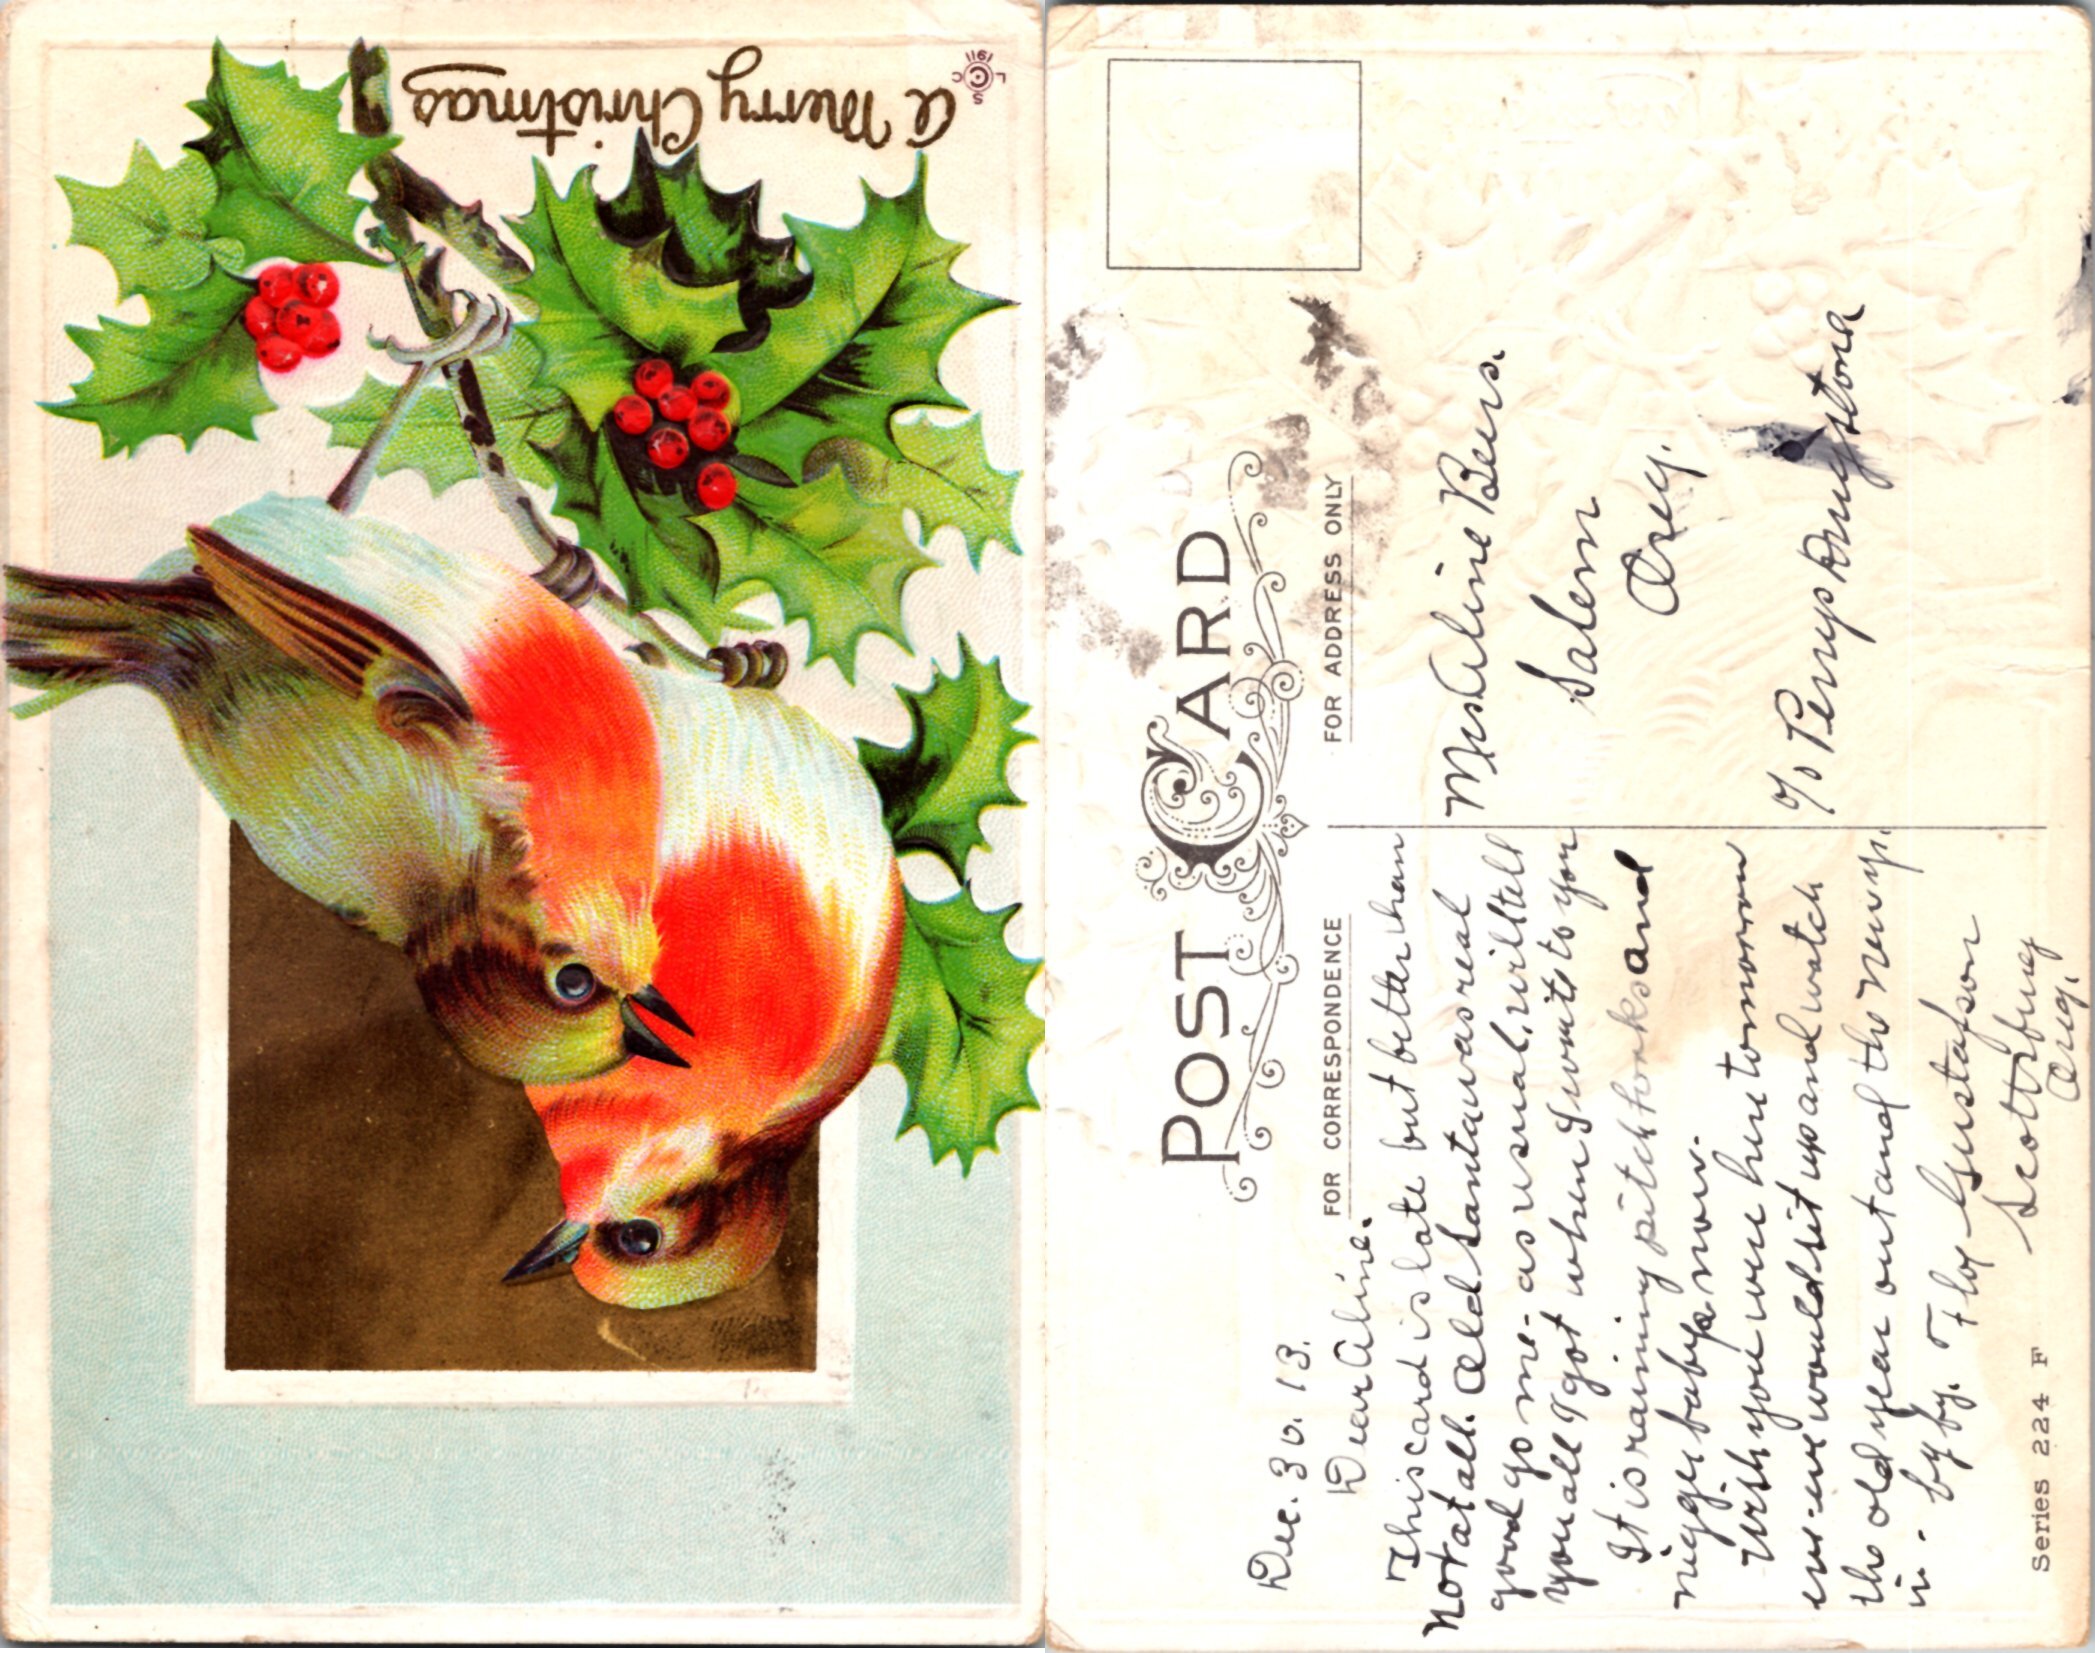 A Merry Christmas
© 1911
POST CARD
FOR CORRESPONDENCE
FOR ADDRESS ONLY
Dec. 30. 13.
Dear Aline.
This card is late but better than
not at all. Old Santa was real
good go me - as usual, will tell
you all I got when I write to you
It is raining pitchforks and
nigger babys now.
Wish you were here tomorrow
eve - we would sit up and watch
the old year out and the new yr.
in -
by by. Floy Gustafson
Scottsburg
Oreg.
Miss Aline Beers.
Salem
Oreg.
% Perrys Drugstore
Series 224 F